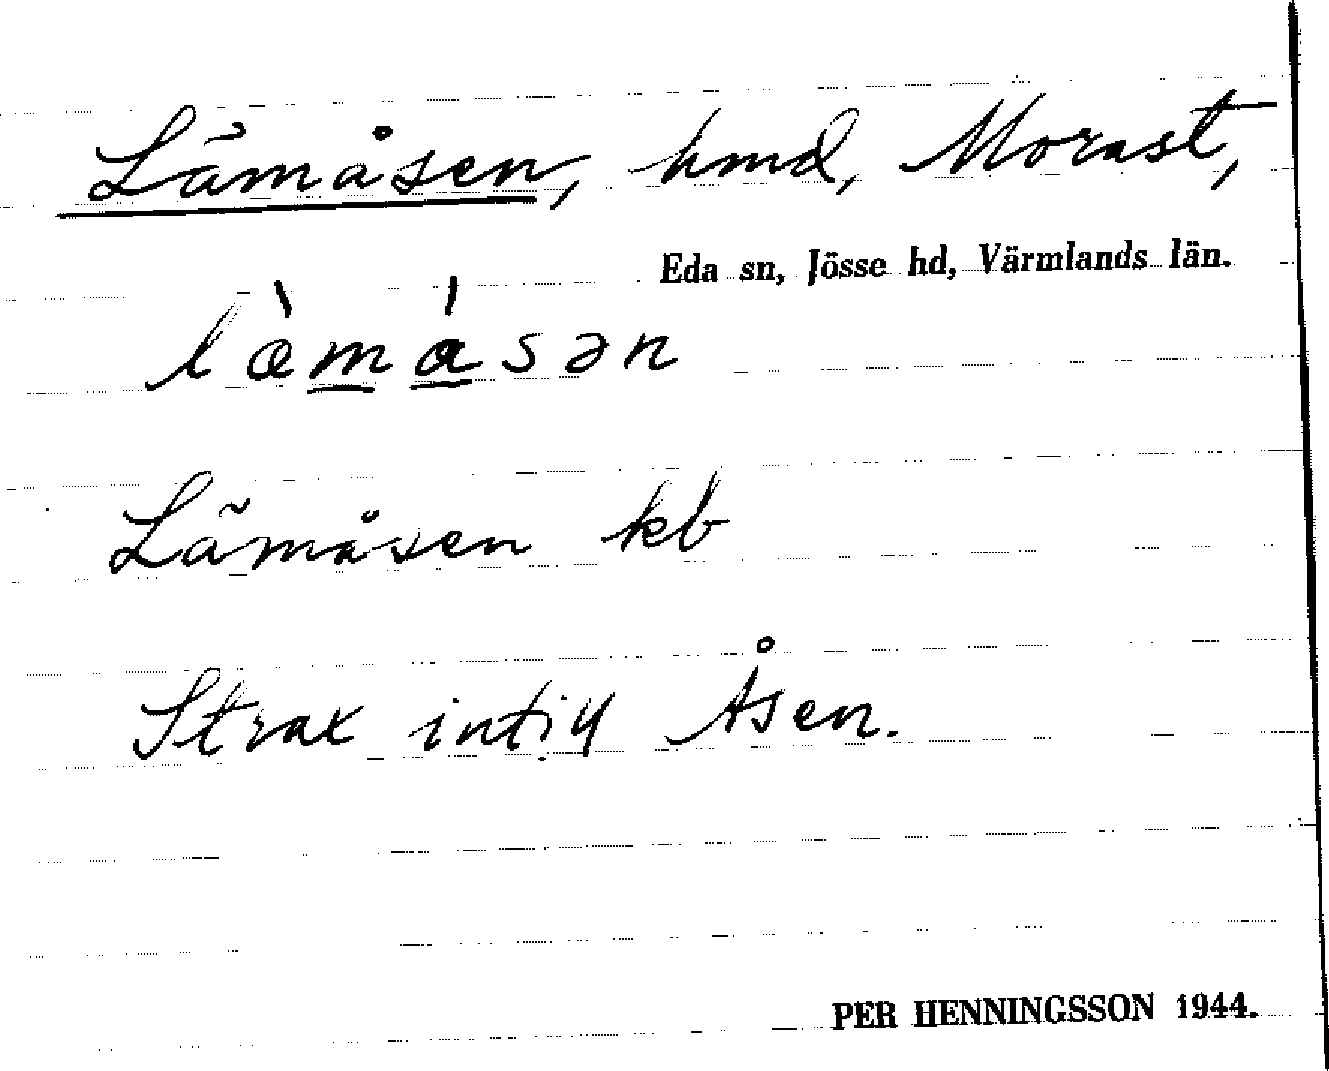 Lämåsen, hmd, Morast,
Eda sn, Jösse hd, Värmlands län.
læ̀mǻsən
Lämåsen kb
Strax intill Åsen.
PER HENNINGSSON 1944.